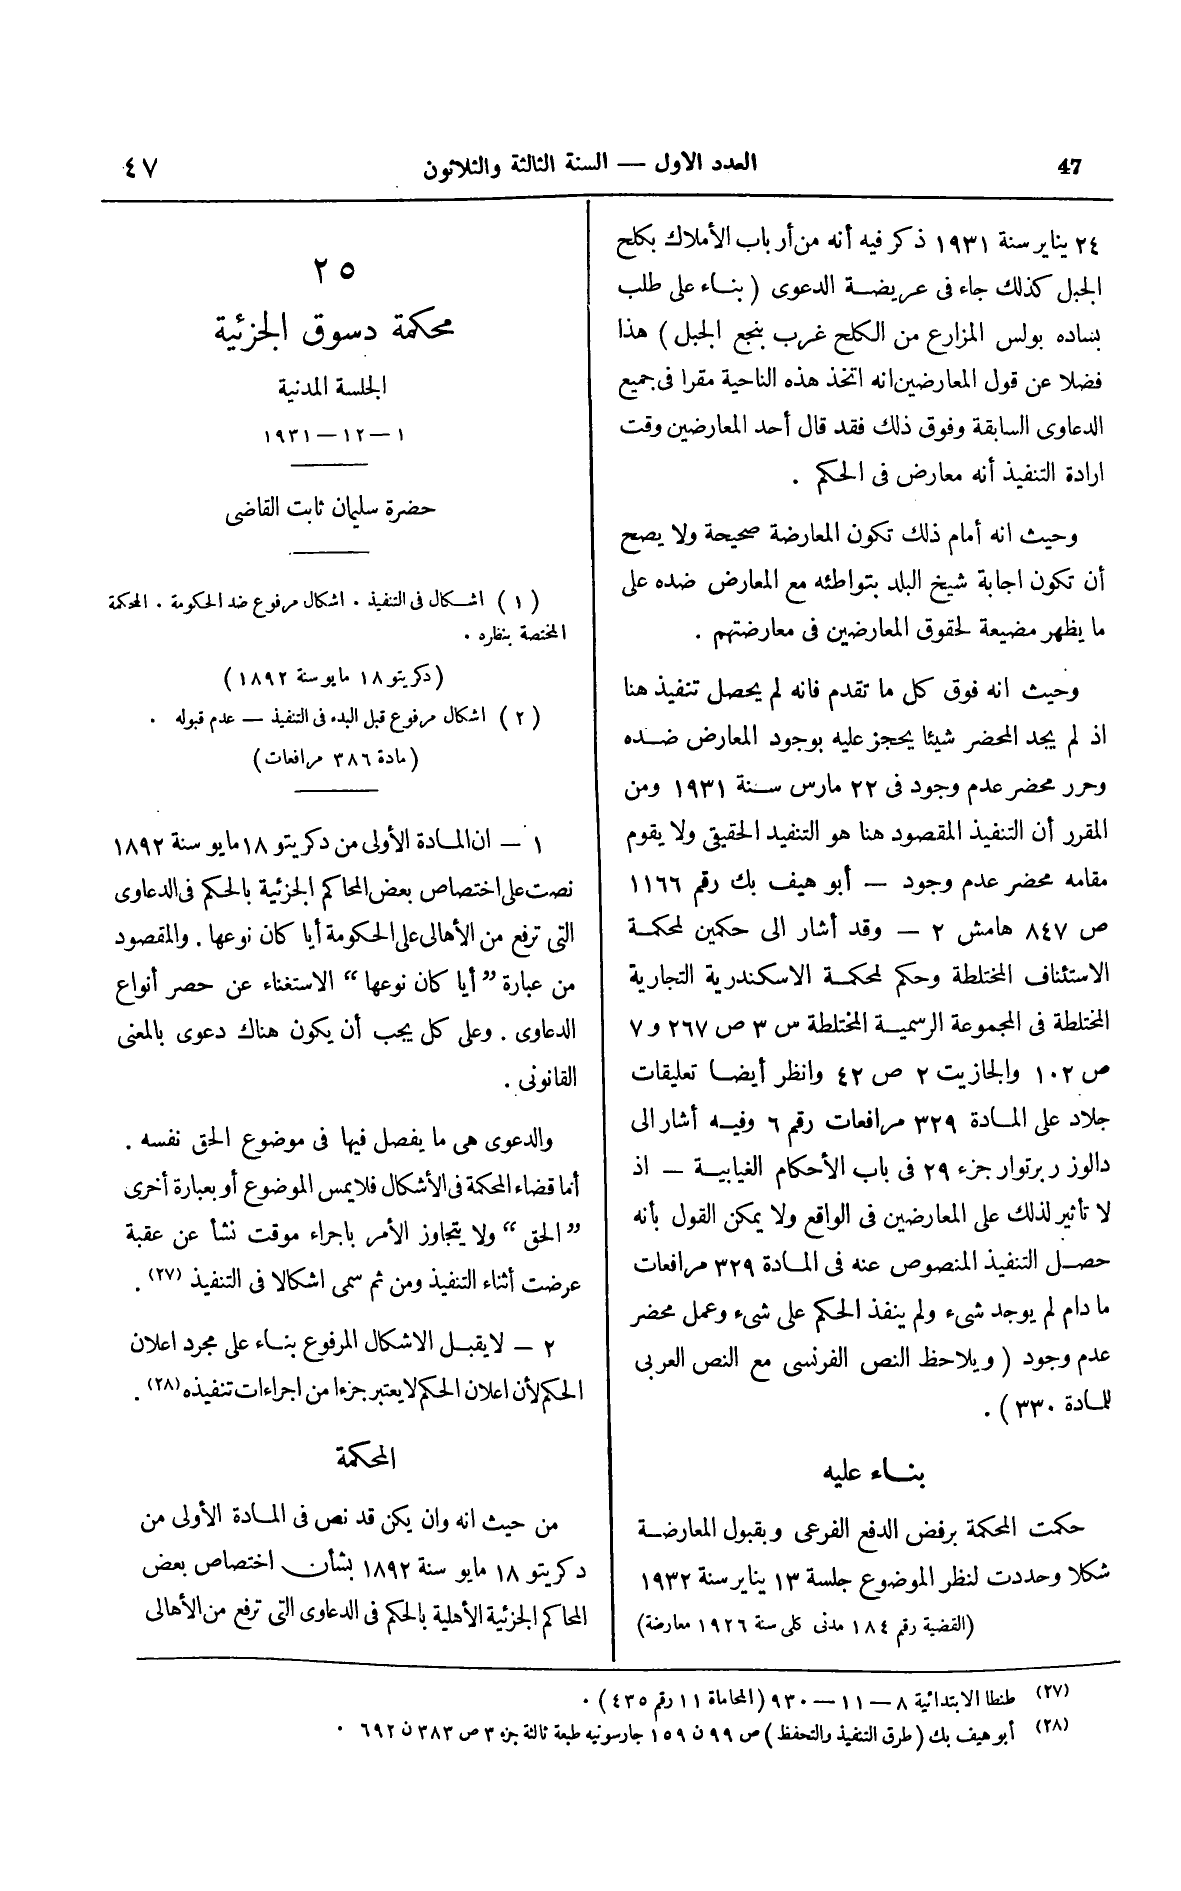 47
العدد الاول — السنة الثالثة والثلاثون
٤٧
٢٤ يناير سنة ١٩٣١ ذكر فيه أنه من أرباب الأملاك بكلح
الجبل كذلك جاء فى عريضة الدعوى ( بناء على طلب
بساده بولس المزارع من الكلح غرب بنجع الجبل ) هذا
فضلا عن قول المعارضين انه اتخذ هذه الناحية مقرا فى جميع
الدعاوى السابقة وفوق ذلك فقد قال أحد المعارضين وقت
ارادة التنفيذ أنه معارض فى الحكم .
وحيث انه أمام ذلك تكون المعارضة صحيحة ولا يصح
أن تكون اجابة شيخ البلد بتواطئه مع المعارض ضده على
ما يظهر مضيعة لحقوق المعارضين فى معارضتهم .
وحيث انه فوق كل ما تقدم فانه لم يحصل تنفيذ هنا
اذ لم يجد المحضر شيئا يحجز عليه بوجود المعارض ضده
وحرر محضر عدم وجود فى ٢٢ مارس سنة ١٩٣١ ومن
المقرر أن التنفيذ المقصود هنا هو التنفيذ الحقيقى ولا يقوم
مقامه محضر عدم وجود — أبو هيف بك رقم ١١٦٦
ص ٨٤٧ هامش ٢ — وقد أشار الى حكمين لمحكمة
الاستئناف المختلطة وحكم لمحكمة الاسكندرية التجارية
المختلطة فى المجموعة الرسمية المختلطة س ٣ ص ٢٦٧ و ٧
ص ١٠٢ والجازيت ٢ ص ٤٢ وانظر أيضا تعليقات
جلاد على المادة ٣٢٩ مرافعات رقم ٦ وفيه أشار الى
دالوز ربرتوار جزء ٢٩ فى باب الأحكام الغيابية — اذ
لا تأثير لذلك على المعارضين فى الواقع ولا يمكن القول بأنه
حصل التنفيذ المنصوص عنه فى المادة ٣٢٩ مرافعات
ما دام لم يوجد شىء ولم ينفذ الحكم على شىء وعمل محضر
عدم وجود ( ويلاحظ النص الفرنسى مع النص العربى
للمادة ٣٣٠ ) .
بناء عليه
حكمت المحكمة برفض الدفع الفرعى وبقبول المعارضة
شكلا وحددت لنظر الموضوع جلسة ١٣ يناير سنة ١٩٣٢
(القضية رقم ١٨٤ مدنى كلى سنة ١٩٢٦ معارضة)
٢٥
محكمة دسوق الجزئية
الجلسة المدنية
١ — ١٢ — ١٩٣١
حضرة سليمان ثابت القاضى
( ١ ) اشكال فى التنفيذ . اشكال مرفوع ضد الحكومة . المحكمة
المختصة بنظره .
(دكريتو ١٨ مايو سنة ١٨٩٢ )
( ٢ ) اشكال مرفوع قبل البدء فى التنفيذ — عدم قبوله .
(مادة ٣٨٦ مرافعات)
١ — ان المادة الأولى من دكريتو ١٨ مايو سنة ١٨٩٢
نصت على اختصاص بعض المحاكم الجزئية بالحكم فى الدعاوى
التى ترفع من الأهالى على الحكومة أيا كان نوعها . والمقصود
من عبارة ”أيا كان نوعها“ الاستغناء عن حصر أنواع
الدعاوى . وعلى كل يجب أن يكون هناك دعوى بالمعنى
القانونى .
والدعوى هى ما يفصل فيها فى موضوع الحق نفسه .
أما قضاء المحكمة فى الأشكال فلا يمس الموضوع أو بعبارة أخرى
”الحق“ ولا يتجاوز الأمر باجراء موقت نشأ عن عقبة
عرضت أثناء التنفيذ ومن ثم سمى اشكالا فى التنفيذ (٢٧) .
٢ — لا يقبل الاشكال المرفوع بناء على مجرد اعلان
الحكم لأن اعلان الحكم لا يعتبر جزءا من اجراءات تنفيذه (٢٨) .
المحكمة
من حيث انه وان يكن قد نص فى المادة الأولى من
دكريتو ١٨ مايو سنة ١٨٩٢ بشأن اختصاص بعض
المحاكم الجزئية الأهلية بالحكم فى الدعاوى التى ترفع من الأهالى
(٢٧) طنطا الابتدائية ٨ — ١١ — ٩٣٠ (المحاماة ١١ رقم ٤٣٥) .
(٢٨) أبو هيف بك (طرق التنفيذ والتحفظ) ص ٩٩ ن ١٥٩ جارسونيه طبعة ثالثة جزء ٣ ص ٣٨٣ ن ٦٩٢ .